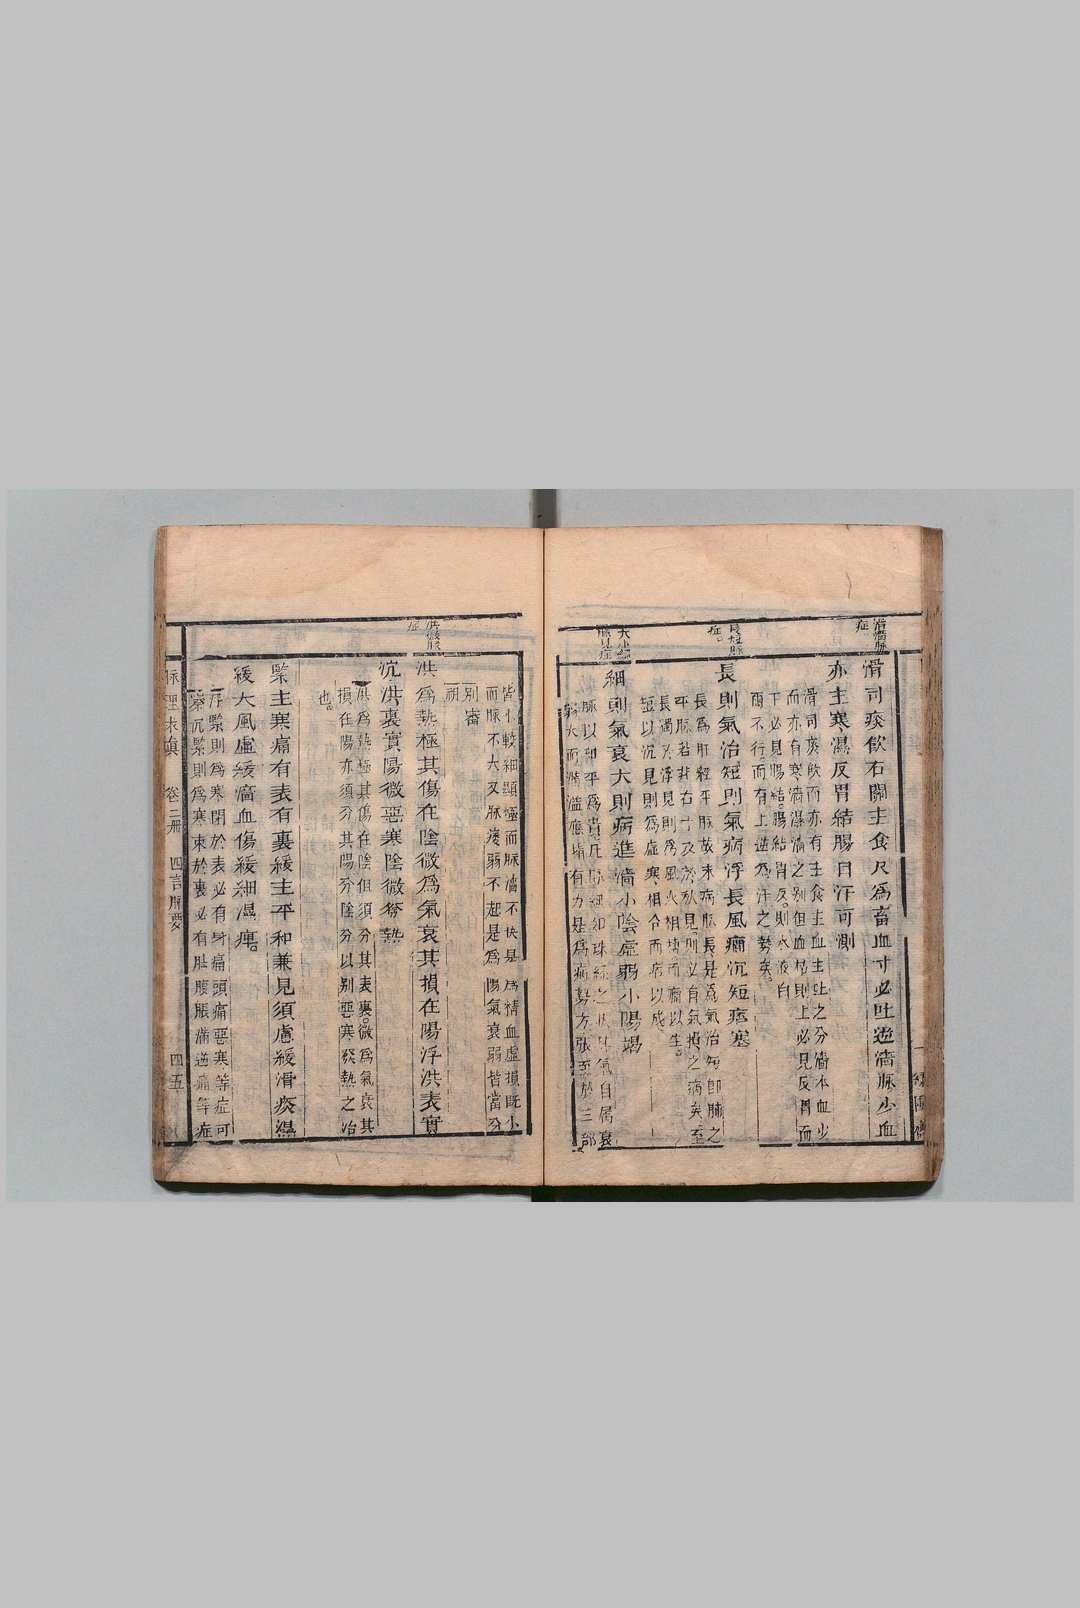 滑濇脉
症
滑司痰飲右關主食尺為畜血寸必吐逆濇脉少血
亦主寒濕反胃結腸自汗可測
滑司痰飲而亦有主食主血主吐之分濇本血少
而亦有寒濇濕濇之別但血枯則上必見反胃而
下必見腸結腸結胃反則水液自
爾不行而有上逆為汗之勢矣
長短脉
症
長則氣治短則氣病浮長風癎沉短痞塞
長為肝經平脉故未病脉長是為氣治每即肺之
平脉若非右寸及於秋見則必有氣損之病矣至
長獨於浮見則為風火相搏而癎以生
短以沉見則為虛寒相合而痞以成
大小細
脉見症
細則氣衰大則病進濇小陰虛弱小陽竭
脉以和平為貴
脉大而滿溢應指有力是為病勢方張至於三部
皆小較細顯極而脉濇不快是為精血虛損既小
而脉不大又脉痿弱不起是為陽氣衰弱皆當分
別審
視
洪微脉
症
洪為熱極其傷在陰微為氣衰其損在陽浮洪表實
沉洪裏實陽微惡寒陰微發熱
洪為熱極其傷在陰但須分其表裏微為氣衰其
損在陽亦須分其陽分陰分以別惡寒發熱之治
也
緊主寒痛有表有裏緩主平和兼見須慮緩滑痰濕
緩大風虛緩濇血傷緩細濕痺
浮緊則為寒閉於表必有身痛頭痛惡寒等症可
察沉緊則為寒束於裏必有肚腹脹滿逆痛等症
脉理求真 卷三册 四言脉要 四五